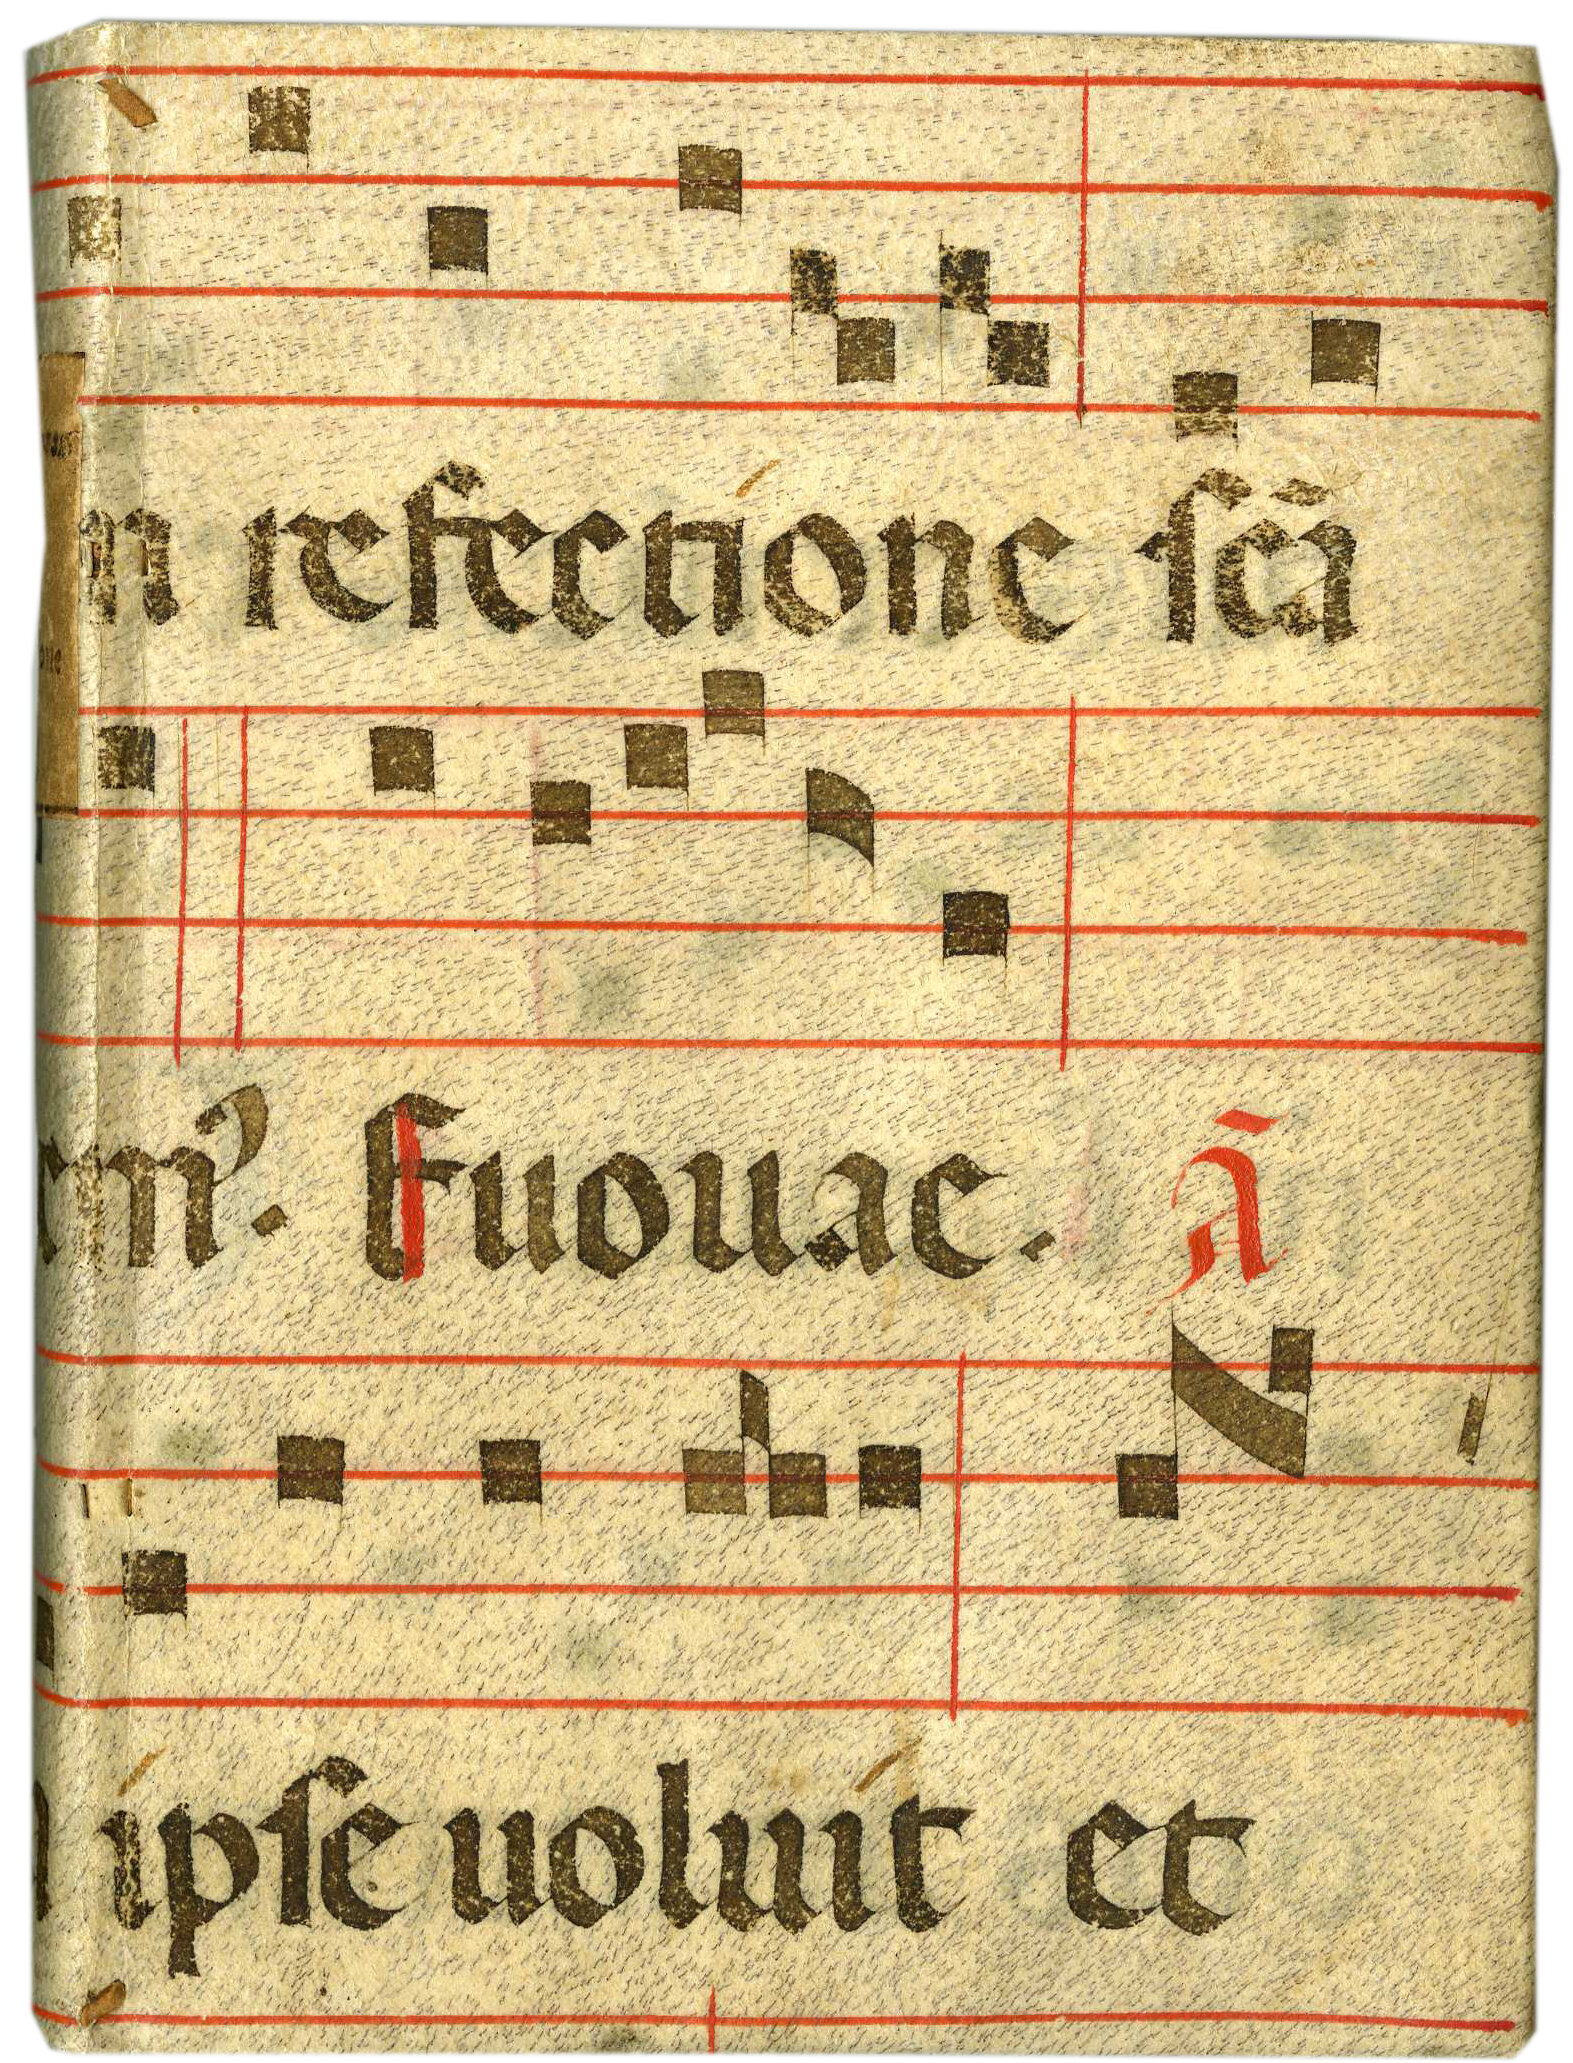 n refectíone sc̄a
rm᾽. Euouae. ā
ípse uoluít et